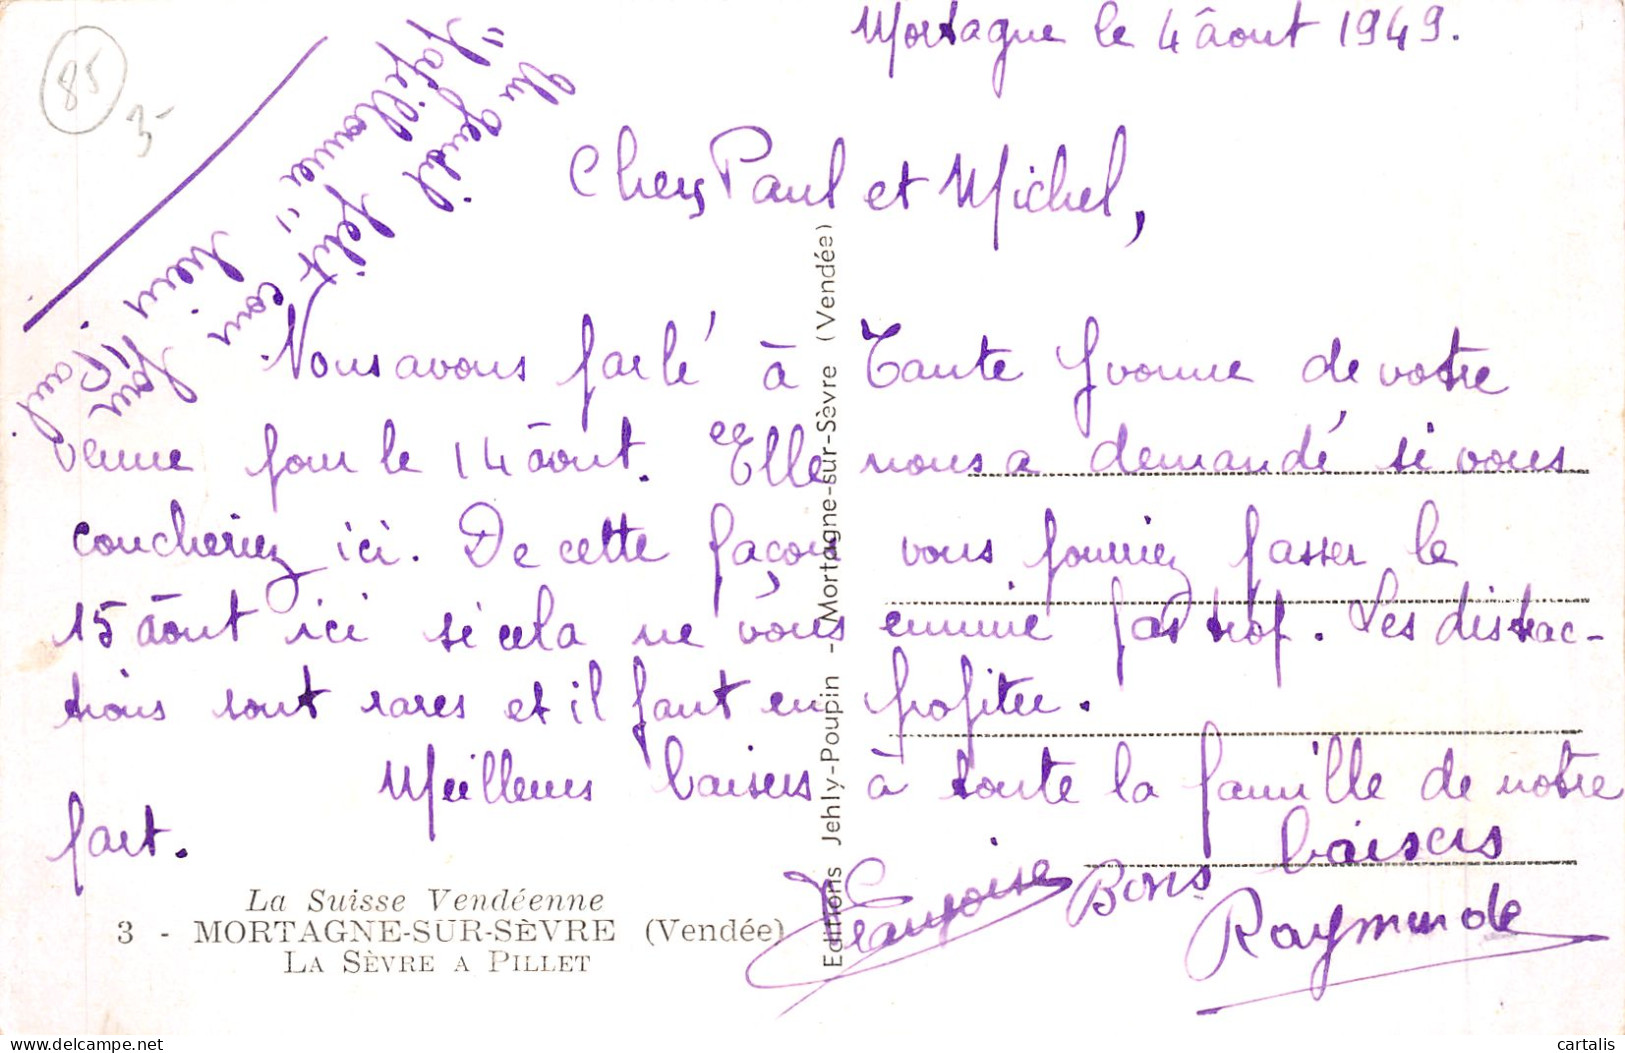 85
3-
Mortagne le 4 âout 1949.
Un gentil petit coin pour
"Papillonner"
mens Paul
Chers Paul et Michel,
Nous avons parlé à Tante Yvonne de votre
venue pour le 14 âout. Elle nous a demandé si vous
coucheriez ici. De cette façon vous pourriez passer le
15 âout ici si cela ne vous ennuie pas trop. Les distrac-
tions sont rares et il faut en profiter.
Meilleurs baisers à toute la famille de notre
part.
Françoise
Bons baisers
Raymonde
La Suisse Vendéenne
3 - MORTAGNE-SUR-SÈVRE (Vendée)
LA SÈVRE A PILLET
Editions Jehly-Poupin - Mortagne-sur-Sèvre (Vendée)
cartalis